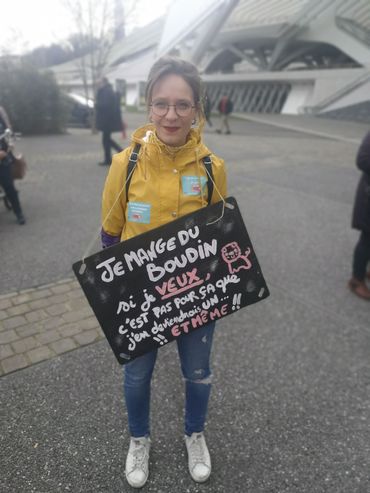 JE MANGE DU
BOUDIN
si je VEUX,
C'EST PAS POUR ÇA QUE
j'en deviendrais UN...
!! ET MÊME !!